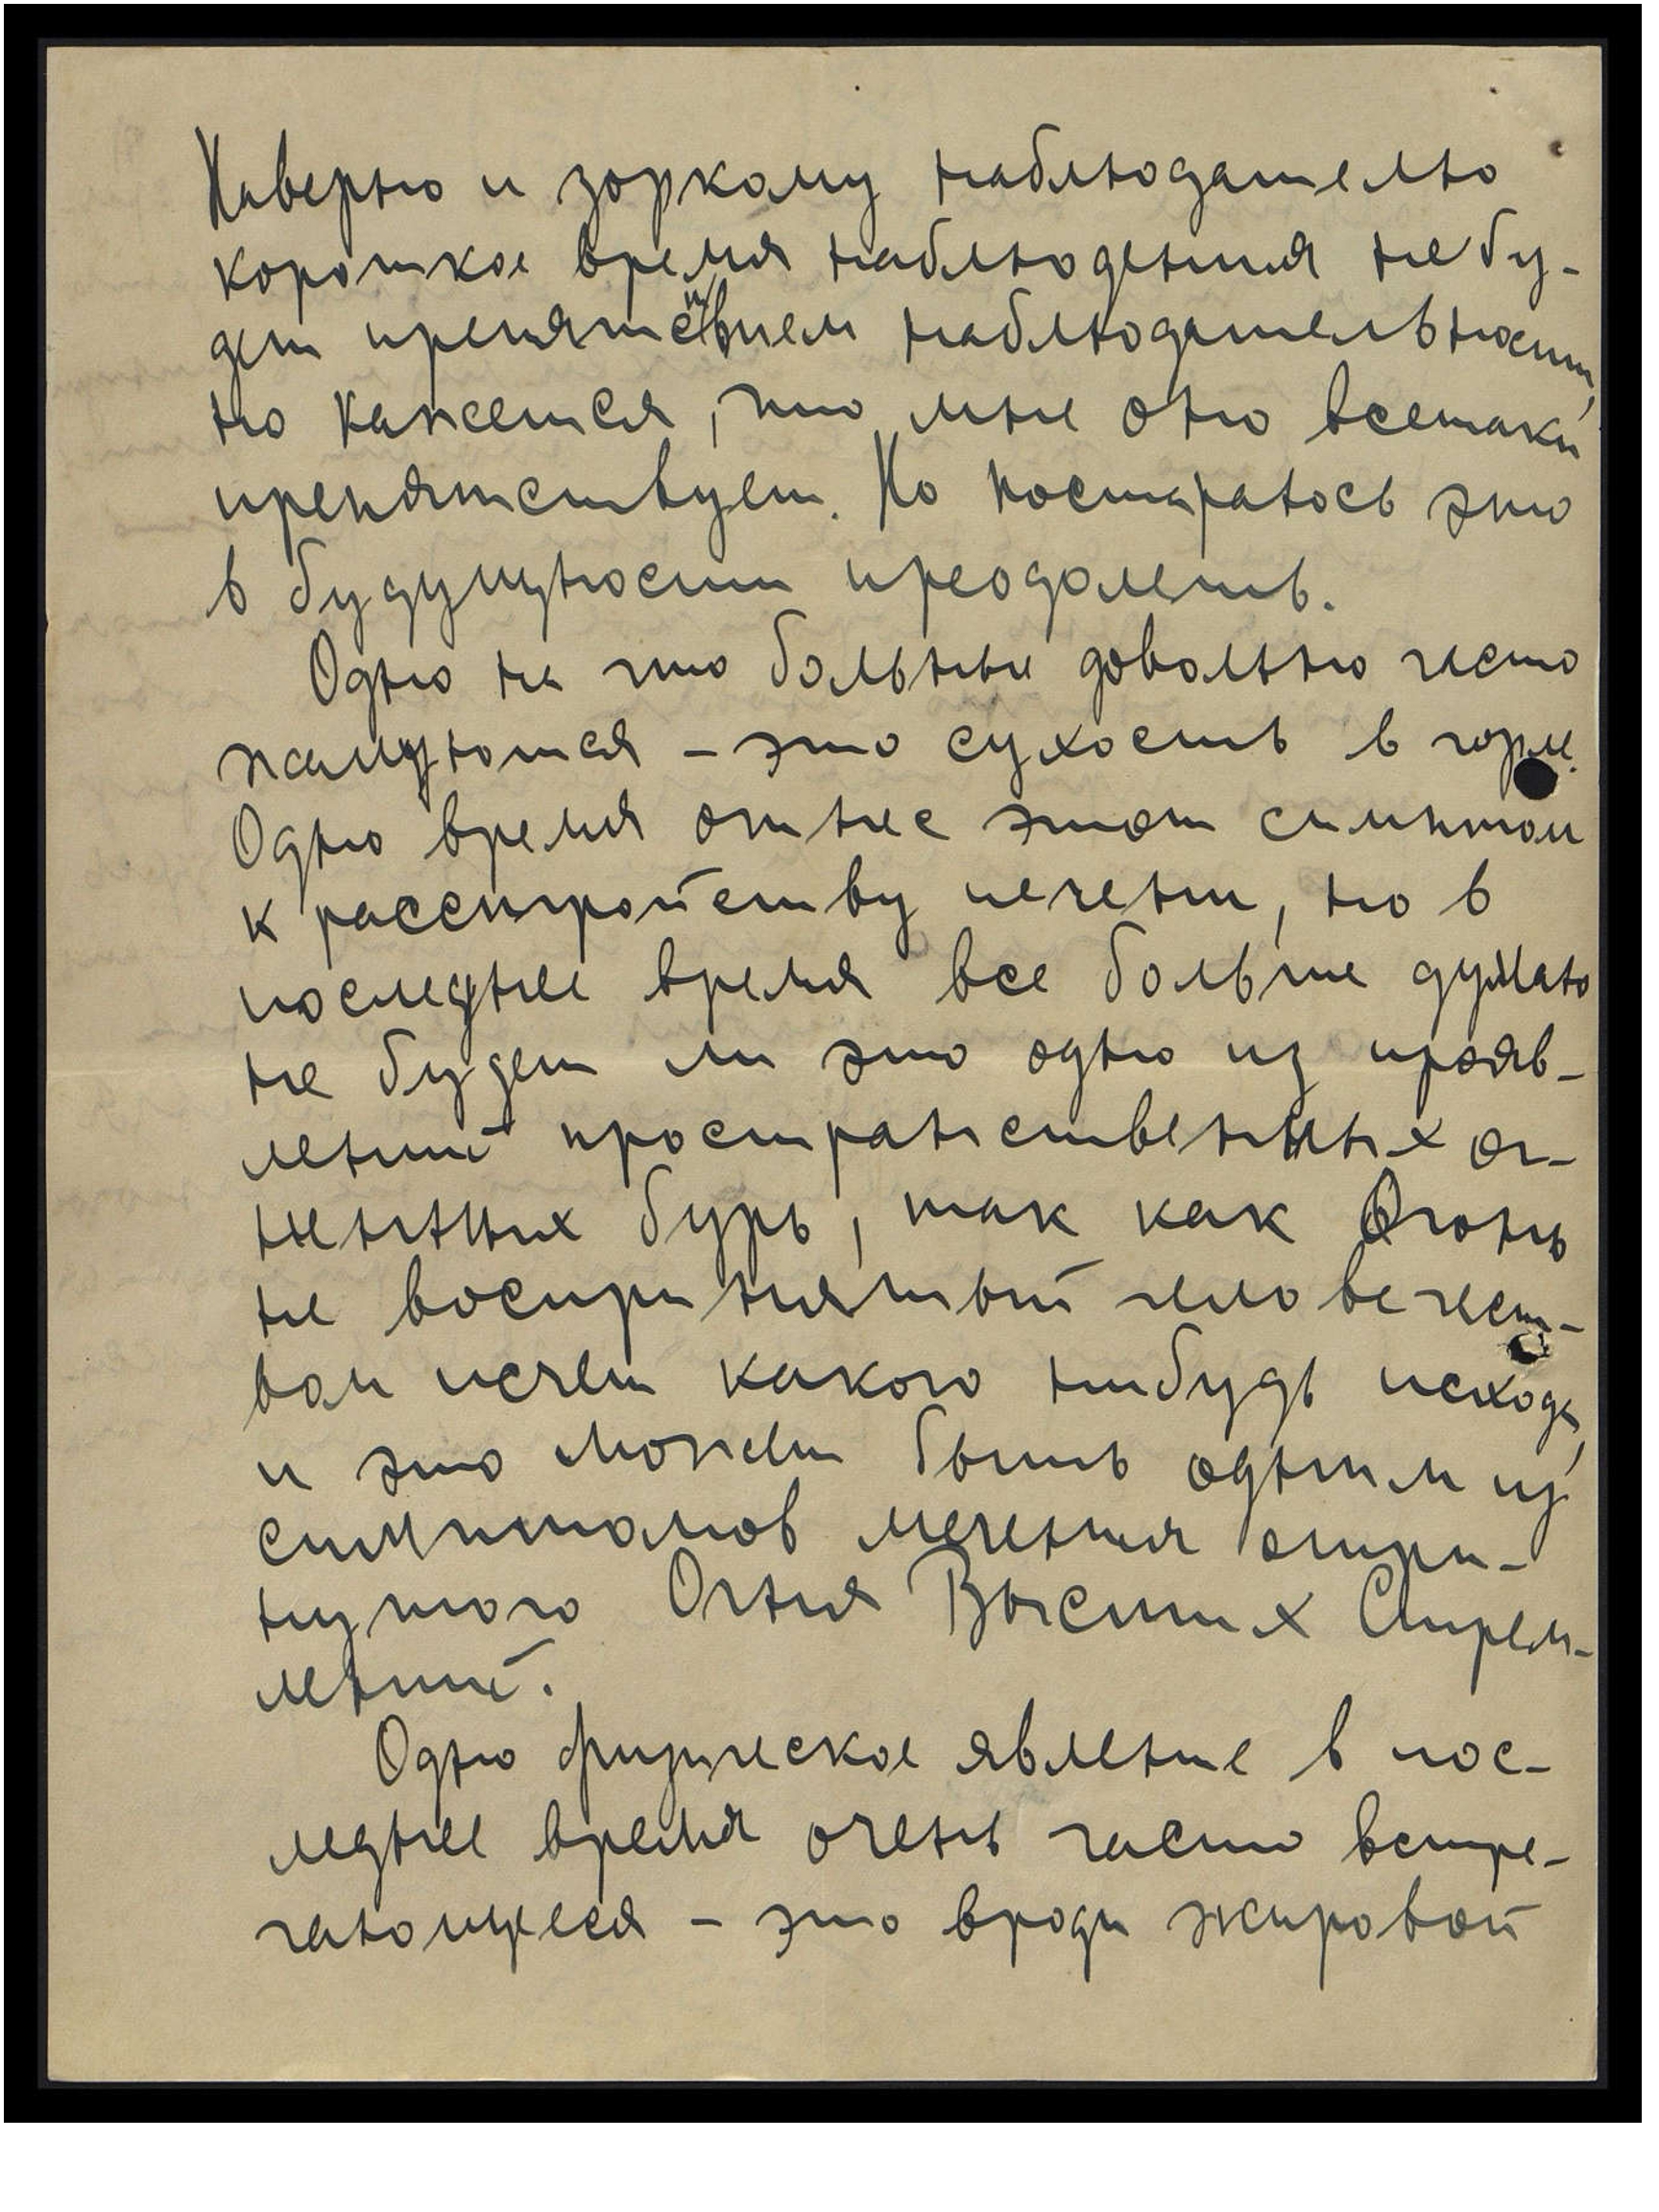 Наверно и зоркому наблюдателю
короткое время наблюдения не бу-
дет препятствием наблюдательности,
но кажется, что мне оно всетаки
препятствует. Но постараюсь это
в будущности преодолеть.
Одно на что больные довольно часто
жалуются – это сухость в горле.
Одно время отнес этот симптом
к расстройству печени, но в
последнее время все больше думаю
не будет ли это одно из прояв-
лений пространственных ог-
ненных бурь, так как Огонь
не воспринятый человечест-
вом исчет какого нибудь исхода,
и это может быть одним из
симптомов мечения отри-
нутого Огня Высших Стрем-
лений.
Одно физическое явление в пос-
леднее время очень часто встре-
чающееся – это вроде жировой